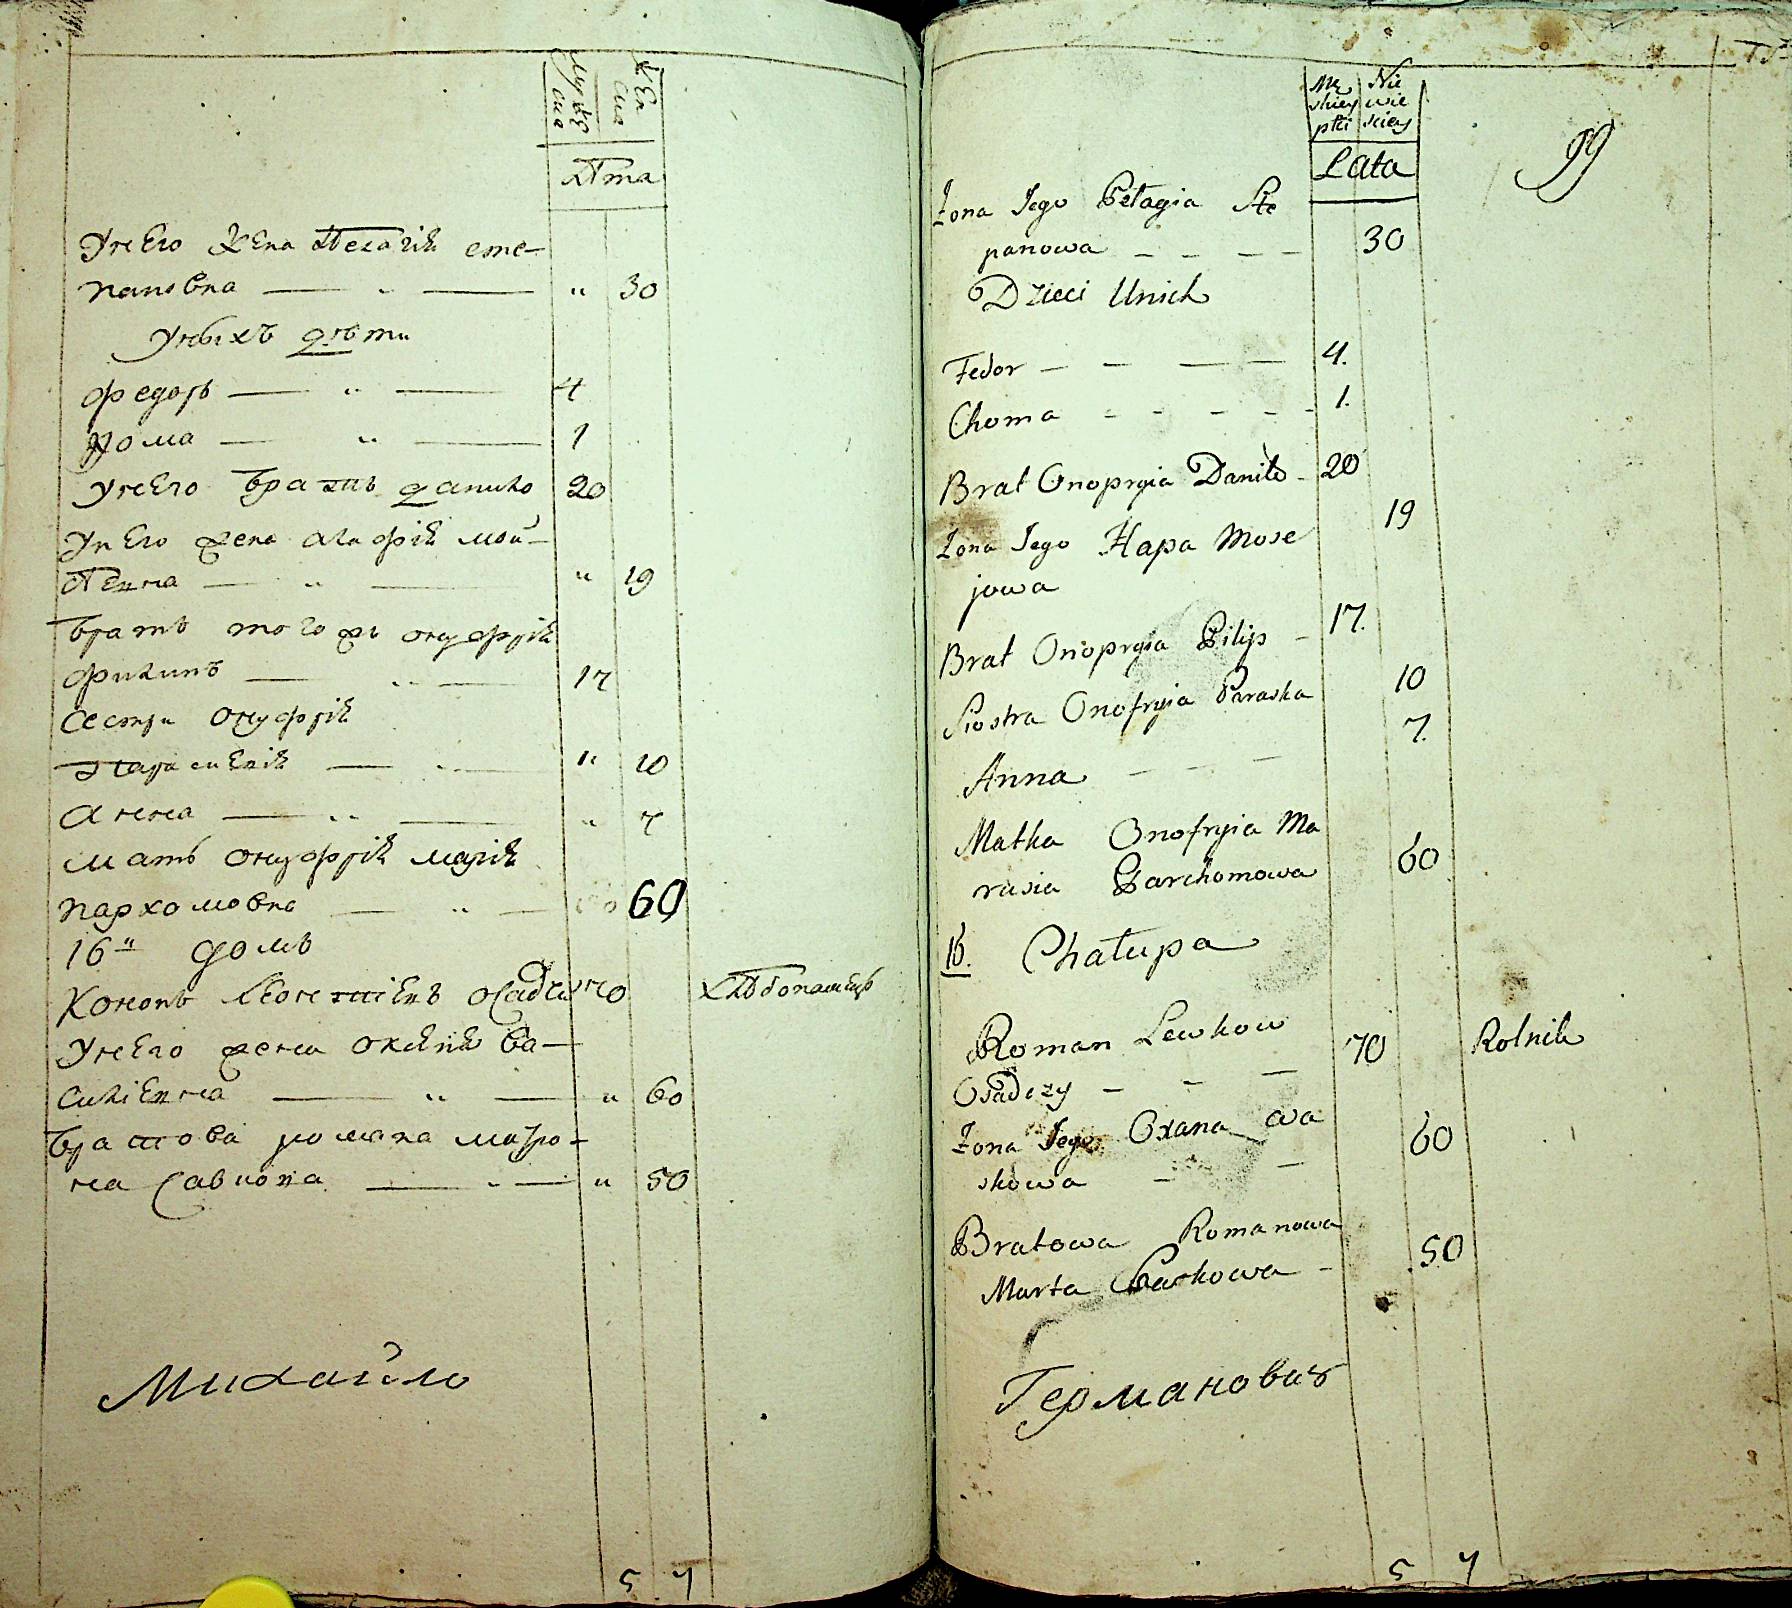 мужеска
женска
Лѣта
Унего жена Пелагія сте-
пановна 〃 30
Унихъ дѣти
федоръ 〃 4
хома 〃 1
Унего братъ данило 20
Унего жена агафія мой-
〃 19
братъ тогожъ онуфрія
филипъ 17
сестри онуфрія
Парасковія 〃 10
Анна 〃 7
мать онуфрія марія
пархомовна 60
16й домъ
осадчи 70 хлѣбопашецъ
Унего жена оксенія ва-
силіевна 〃 60
братова романа
〃 50
Михайло
5 4
Mę Nie
skiey wie
płci skiey
99
Lata
Żona Jego Pełagia Ste
panowa 30
Dzieci Unich
Fedor 4.
Choma 1.
Brat Onopryia Daniło 20
Żona Jego Hapa Mose 19
jowa
Brat Onopryia Pilip 17.
Siostra Onofryia Paraska 10
Anna 7.
Matka Onofryia Ma
rusia Parchomowa 60
16. Chałupa
Roman Lewkow 70 Rolnik
Osadczy
Żona Jego Oxana Wa 60
skowa
Bratowa Romanowa
Marta 50
Германович
5 4